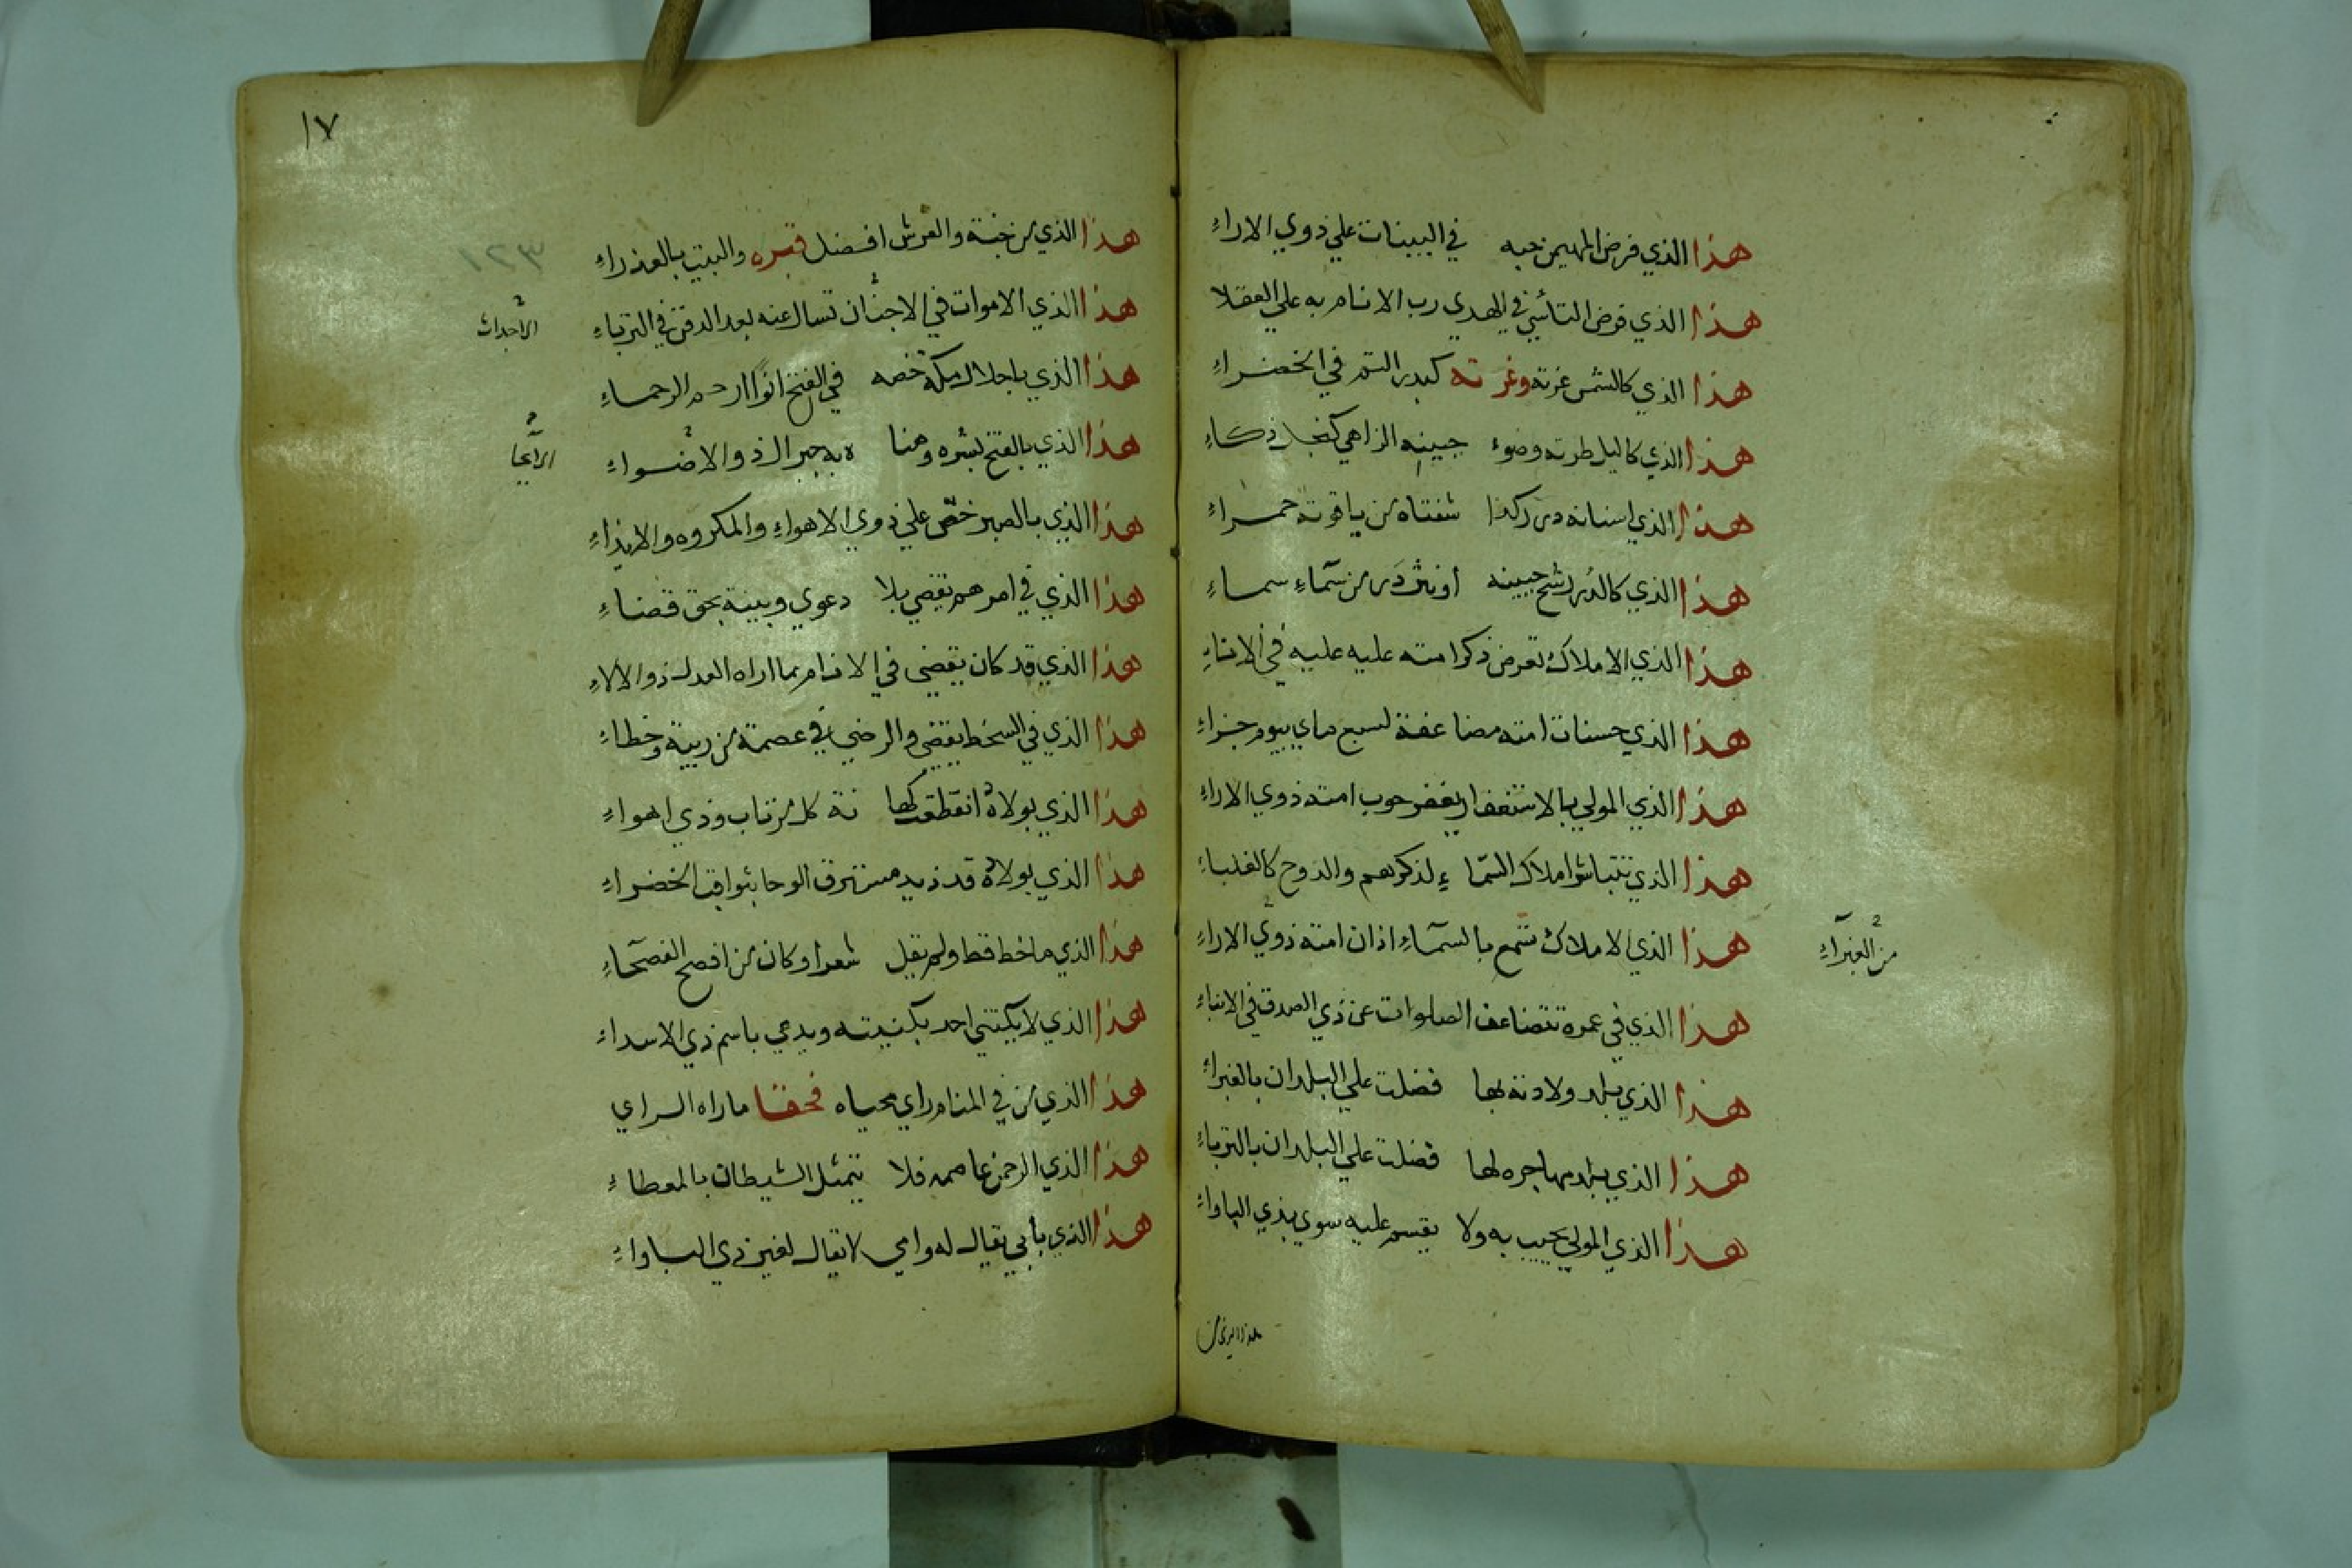 هذا الذي فرض المهيمن حبه في البينات علي ذوي الاراء
هذا الذي فرض التأسي في الهدي رب الانام به علي العقلا
هذا الذي كالشمس غرته وغرته كبدر التم في الخضراء
هذا الذي كاليل طرته وضوء جبينه الزاهي كنجل ذكاء
هذا الذي اسنانه درر كذا شفتاه من ياقوتة حمراء
هذا الذي كالدر رشح جبينه او نثر در من سماء سماء
هذا الذي الاملاك تعرض ذكر امته عليه عليه في الاناء
هذا الذي حسنات امته مضاعفة لسبع ماي بيوم جزاء
هذا الذي المولي بالاستغفار يغفر حوب امته ذوي الاراء
هذا الذي تتباشر املاك السما ء لذكرهم والدوح كالغلباء
هذا الذي الاملاك تسمع بالسماء اذان امته ذوي الاراء
من الغبراء
هذا الذي في عمره تتضاعف الصلوات عن ذي الصدق في الانباء
هذا الذي بلد ولادته بها فضلت علي البلدان بالغبراء
هذا الذي بلد مهاجره لها فضلت علي البلدان بالترباء
هذا الذي المولي يجيب به ولا يقسم عليه سوي بذي الباواء
هذا الذي من
١٧
١٢٣
هذا الذي من جنة والعرش افضل قبره والبيت بالعذراء
هذا الذي الاموات في الاجنان تسال عنه بعد الدفن في الترباء
الاجداث
هذا الذي باحلال مكة خصه في الفتح انا ارحم الرحماء
هذا الذي بالفتح بشره وهنا ه به جبر الذ والاضواء
هذا الذي بالصبر خص علي ذوي الاهواء والمكروه والايذاء
هذا الذي في امرهم يقضي بلا دعوي وبينة بحق قضاء
هذا الذي قد كان يقضي في الانام بما اراه العدل ذو الالاء
هذا الذي في السخط يقضي والرضي في عصمة من ريبة وخطاء
هذا الذي بولاه انقطعت كها نة كل مرتاب وذي اهواء
هذا الذي بولاه قد ذيد مسترق الوحا بثواقب الخضراء
هذا الذي ما خط قط ولم يقل شعرا وكان من افصح الفصحاء
هذا الذي لا يكتني احد بكنيته ويدعي باسم ذي الاسداء
هذا الذي من في المنام راي محياه فحقا ما راه الراي
هذا الذي الرحمن عاصمه فلا يتمثل الشيطان بالمعطاء
هذا الذي بأبي يقال له وامي لا يقال لغير ذي الباواء